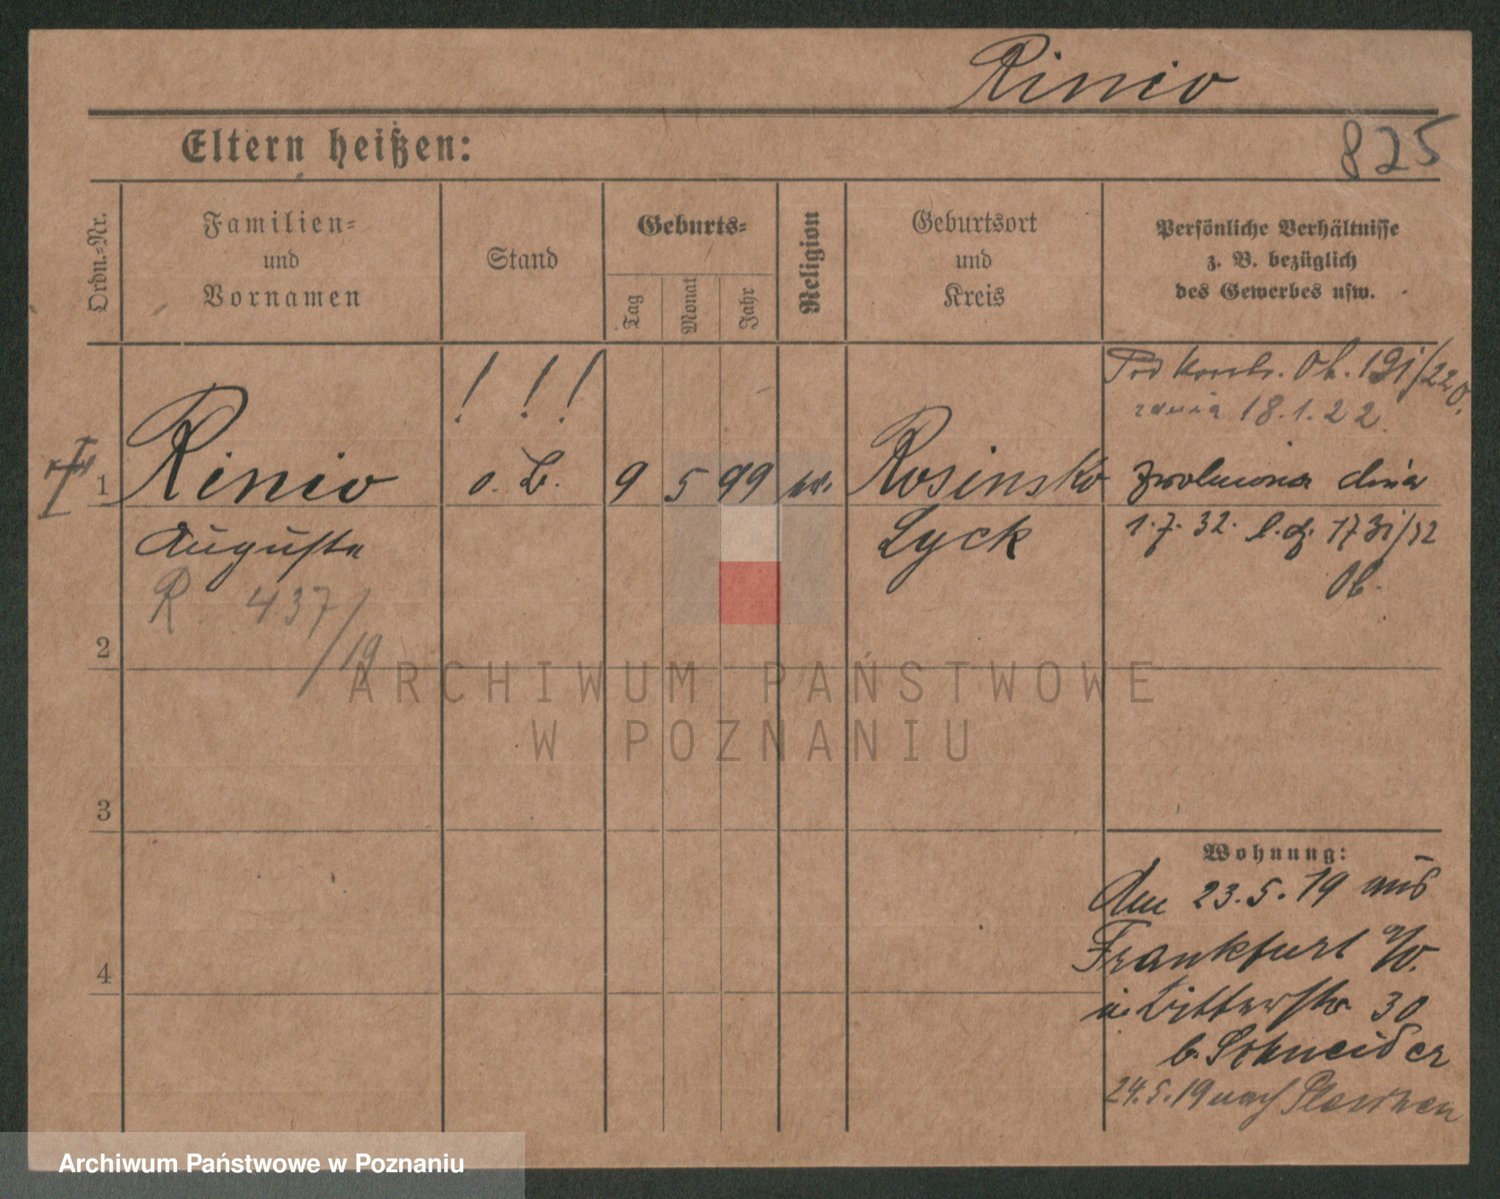 Rinio
825
Eltern heißen:
Ordn.-Nr.
Familien-
und
Vornamen
Stand
Geburts-
Tag
Monat
Jahr
Religion
Geburtsort
und
Kreis
Persönliche Verhältnisse
z. B. bezüglich
des Gewerbes usw.
! ! !
18.1.22.
1 Rinio o. B. 9 5 99 ev. Rosinsko zwolniona dnia
Auguste Lyck 1.7.32. l.dz. 173i/32
R. 437/19
2
3
4
Wohnung:
Am 23.5.19 aus
Frankfurt a/O.
Ritterstr. 30
b. Schneider
24.5.19 nach
ARCHIWUM PAŃSTWOWE
W POZNANIU
Archiwum Państwowe w Poznaniu